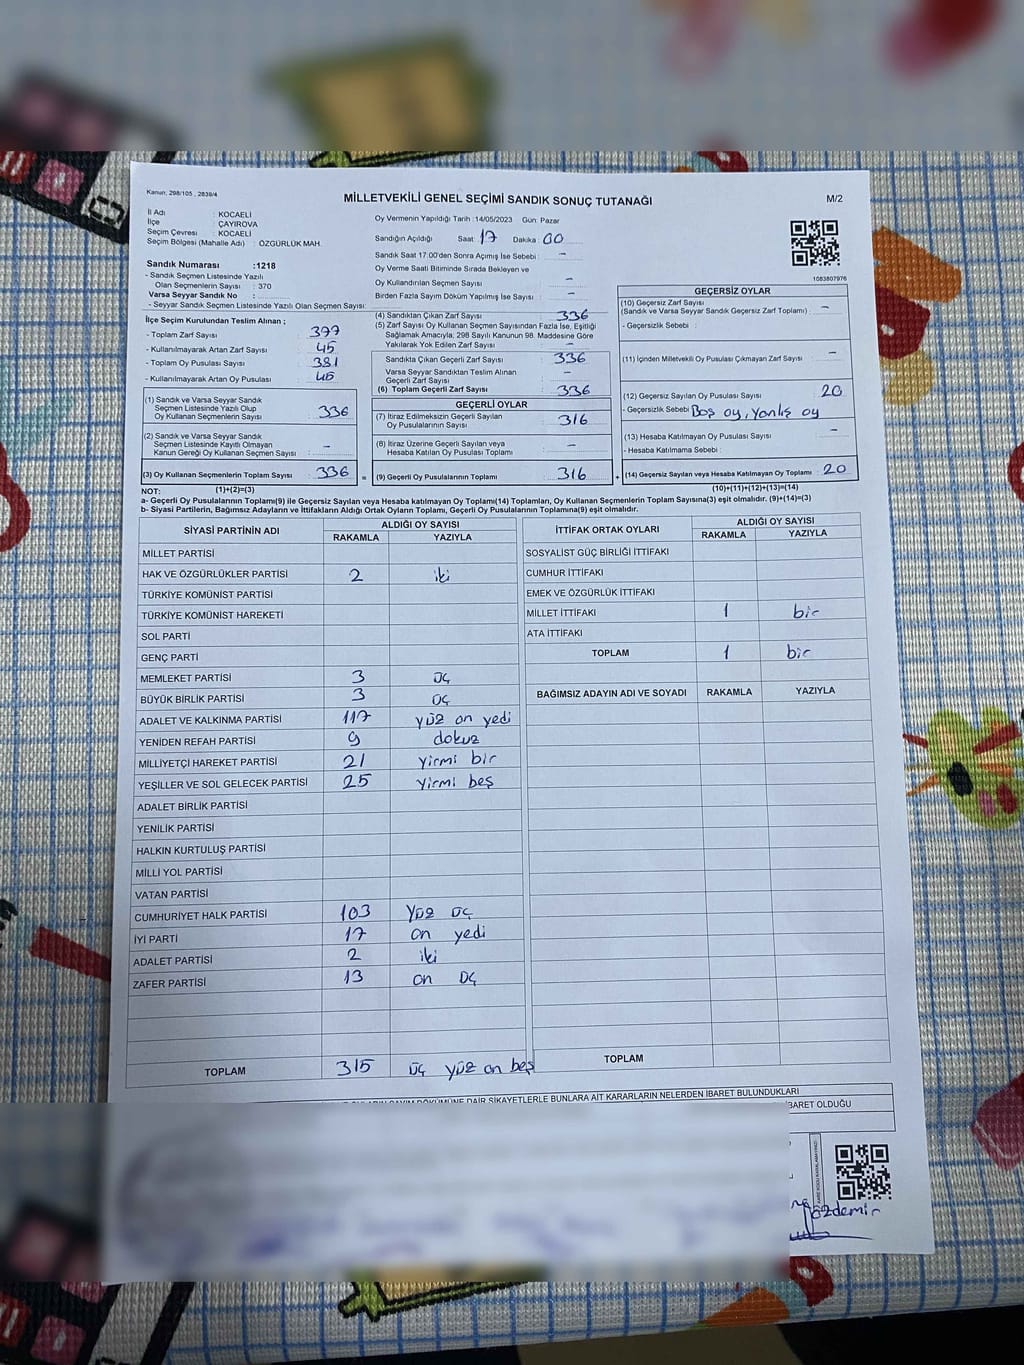 Kanun: 298/105 , 2839/4
MİLLETVEKİLİ GENEL SEÇİMİ SANDIK SONUÇ TUTANAĞI
M/2
İl Adı : KOCAELİ
İlçe : ÇAYIROVA
Seçim Çevresi : KOCAELİ
Seçim Bölgesi (Mahalle Adı) : ÖZGÜRLÜK MAH.
Sandık Numarası :1218
- Sandık Seçmen Listesinde Yazılı
Olan Seçmenlerin Sayısı : 370
Varsa Seyyar Sandık No :
- Seyyar Sandık Seçmen Listesinde Yazılı Olan Seçmen Sayısı:
İlçe Seçim Kurulundan Teslim Alınan ;
- Toplam Zarf Sayısı : 377
- Kullanılmayarak Artan Zarf Sayısı : 45
- Toplam Oy Pusulası Sayısı : 381
- Kullanılmayarak Artan Oy Pusulası : 45
(1) Sandık ve Varsa Seyyar Sandık
Seçmen Listesinde Yazılı Olup
Oy Kullanan Seçmenlerin Sayısı : 336
(2) Sandık ve Varsa Seyyar Sandık
Seçmen Listesinde Kayıtlı Olmayan
Kanun Gereği Oy Kullanan Seçmen Sayısı : -
(3) Oy Kullanan Seçmenlerin Toplam Sayısı : 336
Oy Vermenin Yapıldığı Tarih :14/05/2023 Gün: Pazar
Sandığın Açıldığı Saat: 17 Dakika: 00
Sandık Saat 17:00'den Sonra Açımış İse Sebebi : -
Oy Verme Saati Bitiminde Sırada Bekleyen ve
Oy Kullandırılan Seçmen Sayısı : -
Birden Fazla Sayım Döküm Yapılmış İse Sayısı : -
(4) Sandıktan Çıkan Zarf Sayısı : 336
(5) Zarf Sayısı Oy Kullanan Seçmen Sayısından Fazla İse, Eşitliği
Sağlamak Amacıyla, 298 Sayılı Kanunun 98. Maddesine Göre
Yakılarak Yok Edilen Zarf Sayısı : -
Sandıkta Çıkan Geçerli Zarf Sayısı : 336
Varsa Seyyar Sandıktan Teslim Alınan
Geçerli Zarf Sayısı : -
(6) Toplam Geçerli Zarf Sayısı : 336
GEÇERLİ OYLAR
(7) İtiraz Edilmeksizin Geçerli Sayılan
Oy Pusulalarının Sayısı : 316
(8) İtiraz Üzerine Geçerli Sayılan veya
Hesaba Katılan Oy Pusulası Toplamı : -
= (9) Geçerli Oy Pusulalarının Toplamı : 316
1083807976
GEÇERSİZ OYLAR
(10) Geçersiz Zarf Sayısı
(Sandık ve Varsa Seyyar Sandık Geçersiz Zarf Toplamı) : -
- Geçersizlik Sebebi :
(11) İçinden Milletvekili Oy Pusulası Çıkmayan Zarf Sayısı : -
(12) Geçersiz Sayılan Oy Pusulası Sayısı : 20
- Geçersizlik Sebebi Boş oy, yanlış oy
(13) Hesaba Katılmayan Oy Pusulası Sayısı : -
- Hesaba Katılmama Sebebi :
+ (14) Geçersiz Sayılan veya Hesaba Katılmayan Oy Toplamı : 20
NOT: (1)+(2)=(3) (10)+(11)+(12)+(13)=(14)
a- Geçerli Oy Pusulalarının Toplamı(9) ile Geçersiz Sayılan veya Hesaba katılmayan Oy Toplamı(14) Toplamları, Oy Kullanan Seçmenlerin Toplam Sayısına(3) eşit olmalıdır. (9)+(14)=(3)
b- Siyasi Partilerin, Bağımsız Adayların ve İttifakların Aldığı Ortak Oyların Toplamı, Geçerli Oy Pusulalarının Toplamına(9) eşit olmalıdır.
SİYASİ PARTİNİN ADI ALDIĞI OY SAYISI
RAKAMLA YAZIYLA
MİLLET PARTİSİ
HAK VE ÖZGÜRLÜKLER PARTİSİ 2 iki
TÜRKİYE KOMÜNİST PARTİSİ
TÜRKİYE KOMÜNİST HAREKETİ
SOL PARTİ
GENÇ PARTİ
MEMLEKET PARTİSİ 3 üç
BÜYÜK BİRLİK PARTİSİ 3 üç
ADALET VE KALKINMA PARTİSİ 117 yüz on yedi
YENİDEN REFAH PARTİSİ 9 dokuz
MİLLİYETÇİ HAREKET PARTİSİ 21 yirmi bir
YEŞİLLER VE SOL GELECEK PARTİSİ 25 yirmi beş
ADALET BİRLİK PARTİSİ
YENİLİK PARTİSİ
HALKIN KURTULUŞ PARTİSİ
MİLLİ YOL PARTİSİ
VATAN PARTİSİ
CUMHURİYET HALK PARTİSİ 103 yüz üç
İYİ PARTİ 17 on yedi
ADALET PARTİSİ 2 iki
ZAFER PARTİSİ 13 on üç
TOPLAM 315 üç yüz on beş
İTTİFAK ORTAK OYLARI ALDIĞI OY SAYISI
RAKAMLA YAZIYLA
SOSYALİST GÜÇ BİRLİĞİ İTTİFAKI
CUMHUR İTTİFAKI
EMEK VE ÖZGÜRLÜK İTTİFAKI
MİLLET İTTİFAKI 1 bir
ATA İTTİFAKI
TOPLAM 1 bir
BAĞIMSIZ ADAYIN ADI VE SOYADI RAKAMLA YAZIYLA
TOPLAM
DÖKÜMÜNE DAİR ŞİKAYETLERLE BUNLARA AİT KARARLARIN NELERDEN İBARET BULUNDUKLARI
İBARET OLDUĞU
özdemir